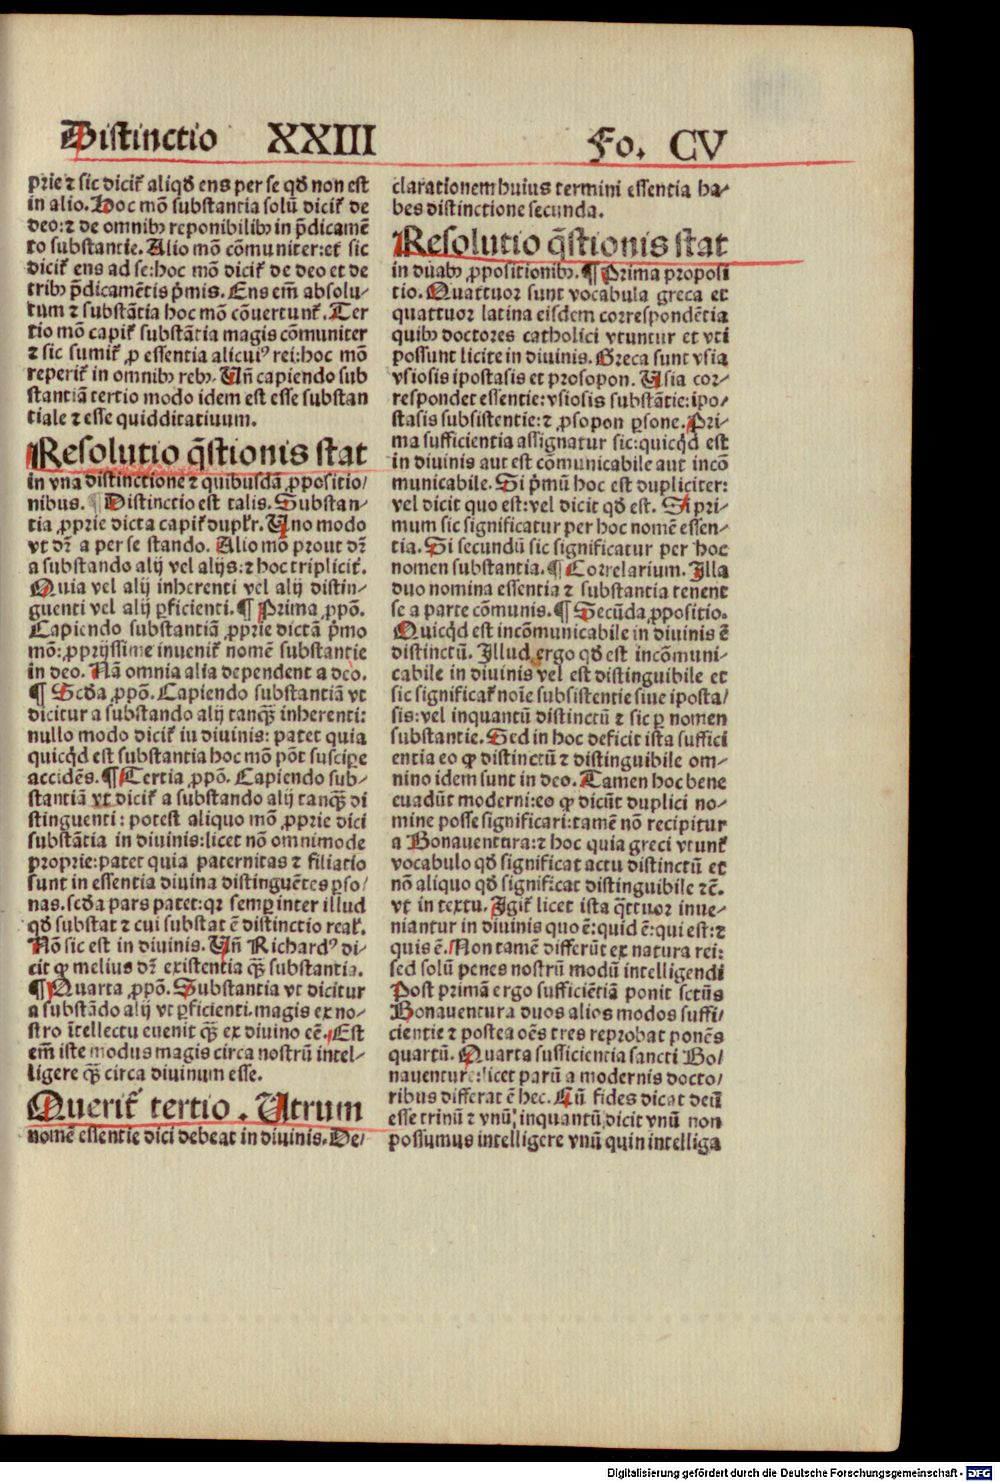 Distinctio XXIII Fo. CV
prie ⁊ sic diciť aliqď ens per se qď non est
in alio. Hoc mõ substantia solũ diciť de
deo: ⁊ de omnibꝫ reponibilibꝫ in p̃dicamẽ
to substantie. Alio mõ cõmuniter: et sic
diciť ens ad se: hoc mõ diciť de deo et de
tribꝫ p̃dicamẽtis p̃mis. Ens em̃ absolu⸗
tum ⁊ substãtia hoc mõ cõuertunť. Ter
tio mõ capiť substãtia magis cõmuniter
⁊ sic sumiť ꝓ essentia alicuiꝰ rei: hoc mõ
reperiť in omnibꝫ rebꝫ. Uñ capiendo sub
stantiã tertio modo idem est esse substan
tiale ⁊ esse quidditatiuum.
Resolutio q̃stionis stat
in vna distinctione ⁊ quibusdã ꝓpositio⸗
nibus. ¶ Distinctio est talis. Substan⸗
tia ꝓprie dicta capiť dupľr. Uno modo
vt dr̃ a per se stando. Alio mõ prout dr̃
a substando alij vel alijs: ⁊ hoc tripliciť.
Quia vel alij inherenti vel alij distin⸗
guenti vel alij ꝑficienti. ¶ Prima ꝓpõ.
Capiendo substantiã ꝓprie dictã p̃mo
mõ: ꝓprijssime inueniť nomẽ substantie
in deo. Nã omnia alia dependent a deo.
¶ Scďa ꝓpõ. Capiendo substantiã vt
dicitur a substando alij tanq̃ꝫ inherenti:
nullo modo diciť iu diuinis: patet quia
quicq̃d est substantia hoc mõ põt suscipe
accidẽs. ¶ Tertia ꝓpõ. Capiendo sub⸗
stantiã vt diciť a substando alij tanq̃ꝫ di
stinguenti: potest aliquo mõ ꝓprie dici
substãtia in diuinis: licet nõ omnimode
proprie: patet quia paternitas ⁊ filiatio
sunt in essentia diuina distinguẽtes ꝑso⸗
nas. scďa pars patet: qꝛ semꝑ inter illud
qď substat ⁊ cui substat ẽ distinctio reaľ.
Nõ sic est in diuinis. Uñ Richardꝰ di⸗
cit ꝙ melius dr̃ existentia q̃ꝫ substantia.
¶ Quarta ꝓpõ. Substantia vt dicitur
a substãdo alij vt ꝑficienti. magis ex no⸗
stro ĩtellectu euenit q̃ꝫ ex diuino eẽ. Est
em̃ iste modus magis circa nostrũ intel⸗
ligere q̃ꝫ circa diuinum esse.
Queriť tertio. Utrum
nomẽ essentie dici debeat in diuinis. De⸗
clarationem huius termini essentia ha⸗
bes distinctione secunda.
Resolutio q̃stionis stat
in duabꝫ ꝓpositionibꝫ. ¶ Prima proposi
tio. Quattuor sunt vocabula greca et
quattuor latina eisdem correspondẽtia
quibꝫ doctores catholici vtuntur et vti
possunt licite in diuinis. Greca sunt vsia
vsiosis ipostasis et prosopon. Usia cor⸗
respondet essentie: vsiosis substãtie: ipo⸗
stasis subsistentie: ⁊ ꝓsopon ꝑsone. Pri⸗
ma sufficientia assignatur sic: quicq̃d est
in diuinis aut est cõmunicabile aut incõ
municabile. Si p̃mũ hoc est dupliciter:
vel dicit quo est: vel dicit qď est. Si pri⸗
mum sic significatur per hoc nomẽ essen⸗
tia. Si secundũ sic significatur per hoc
nomen substantia. ¶ Correlarium. Illa
duo nomina essentia ⁊ substantia tenent
se a parte cõmunis. ¶ Secũda ꝓpositio.
Quicq̃d est incõmunicabile in diuinis ẽ
distinctũ. Illud ergo qď est incõmuni⸗
cabile in diuinis vel est distinguibile et
sic significať noĩe subsistentie siue iposta⸗
sis: vel inquantũ distinctũ ⁊ sic ꝑ nomen
substantie. Sed in hoc deficit ista suffici
entia eo ꝙ distinctũ ⁊ distinguibile om⸗
nino idem sunt in deo. Tamen hoc bene
euadũt moderni: eo ꝙ dicũt duplici no⸗
mine posse significari: tamẽ nõ recipitur
a Bonauentura: ⁊ hoc quia greci vtunť
vocabulo qď significat actu distinctũ et
nõ aliquo qď significat distinguibile ⁊c̃.
vt in textu. Igiť licet ista q̃ttuor inue⸗
niantur in diuinis quo ẽ: quid ẽ: qui est: ⁊
quis ẽ. Non tamẽ differũt ex natura rei:
sed solũ penes nostrũ modũ intelligendi
Post primã ergo sufficiẽtiã ponit sctũs
Bonauentura duos alios modos suffi⸗
cientie ⁊ postea oẽs tres reprobat ponẽs
quartũ. Quarta sufficientia sancti Bo⸗
nauenture: licet parũ a modernis docto⸗
ribus differat ẽ hec. Cũ fides dicat deũ
esse trinũ ⁊ vnũ, inquantũ dicit vnũ non
possumus intelligere vnũ quin intelliga
Digitalisierung gefördert durch die Deutsche Forschungsgemeinschaft - DFG